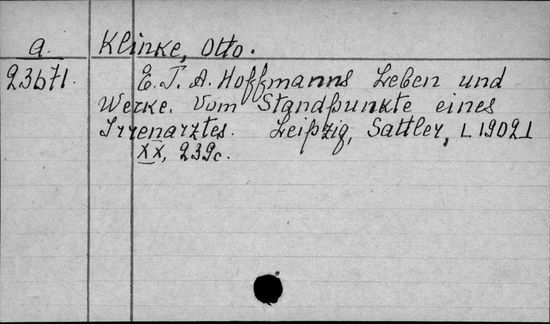 a. Klinke, Otto.
23671. E. T. A. Hoffmanns Leben und
Werke. Vom Standpunkte eines
Irrenarztes. Leipzig, Sattler, [1902]
XX, 239c.